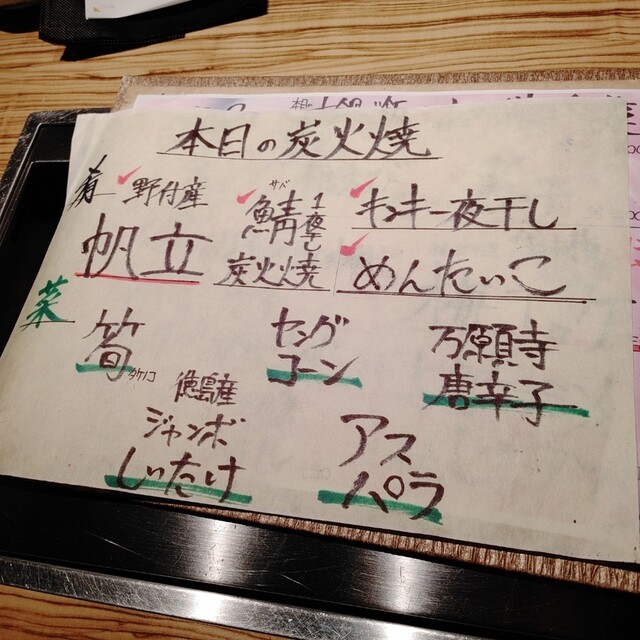 本日の炭火焼
肴
野付産
帆立
サバ
鯖
炭火焼
キンキ一夜干し
めんたいこ
菜
筍
タケノコ
ヤング
コーン
万願寺
唐辛子
徳島産
ジャンボ
しいたけ
アス
パラ